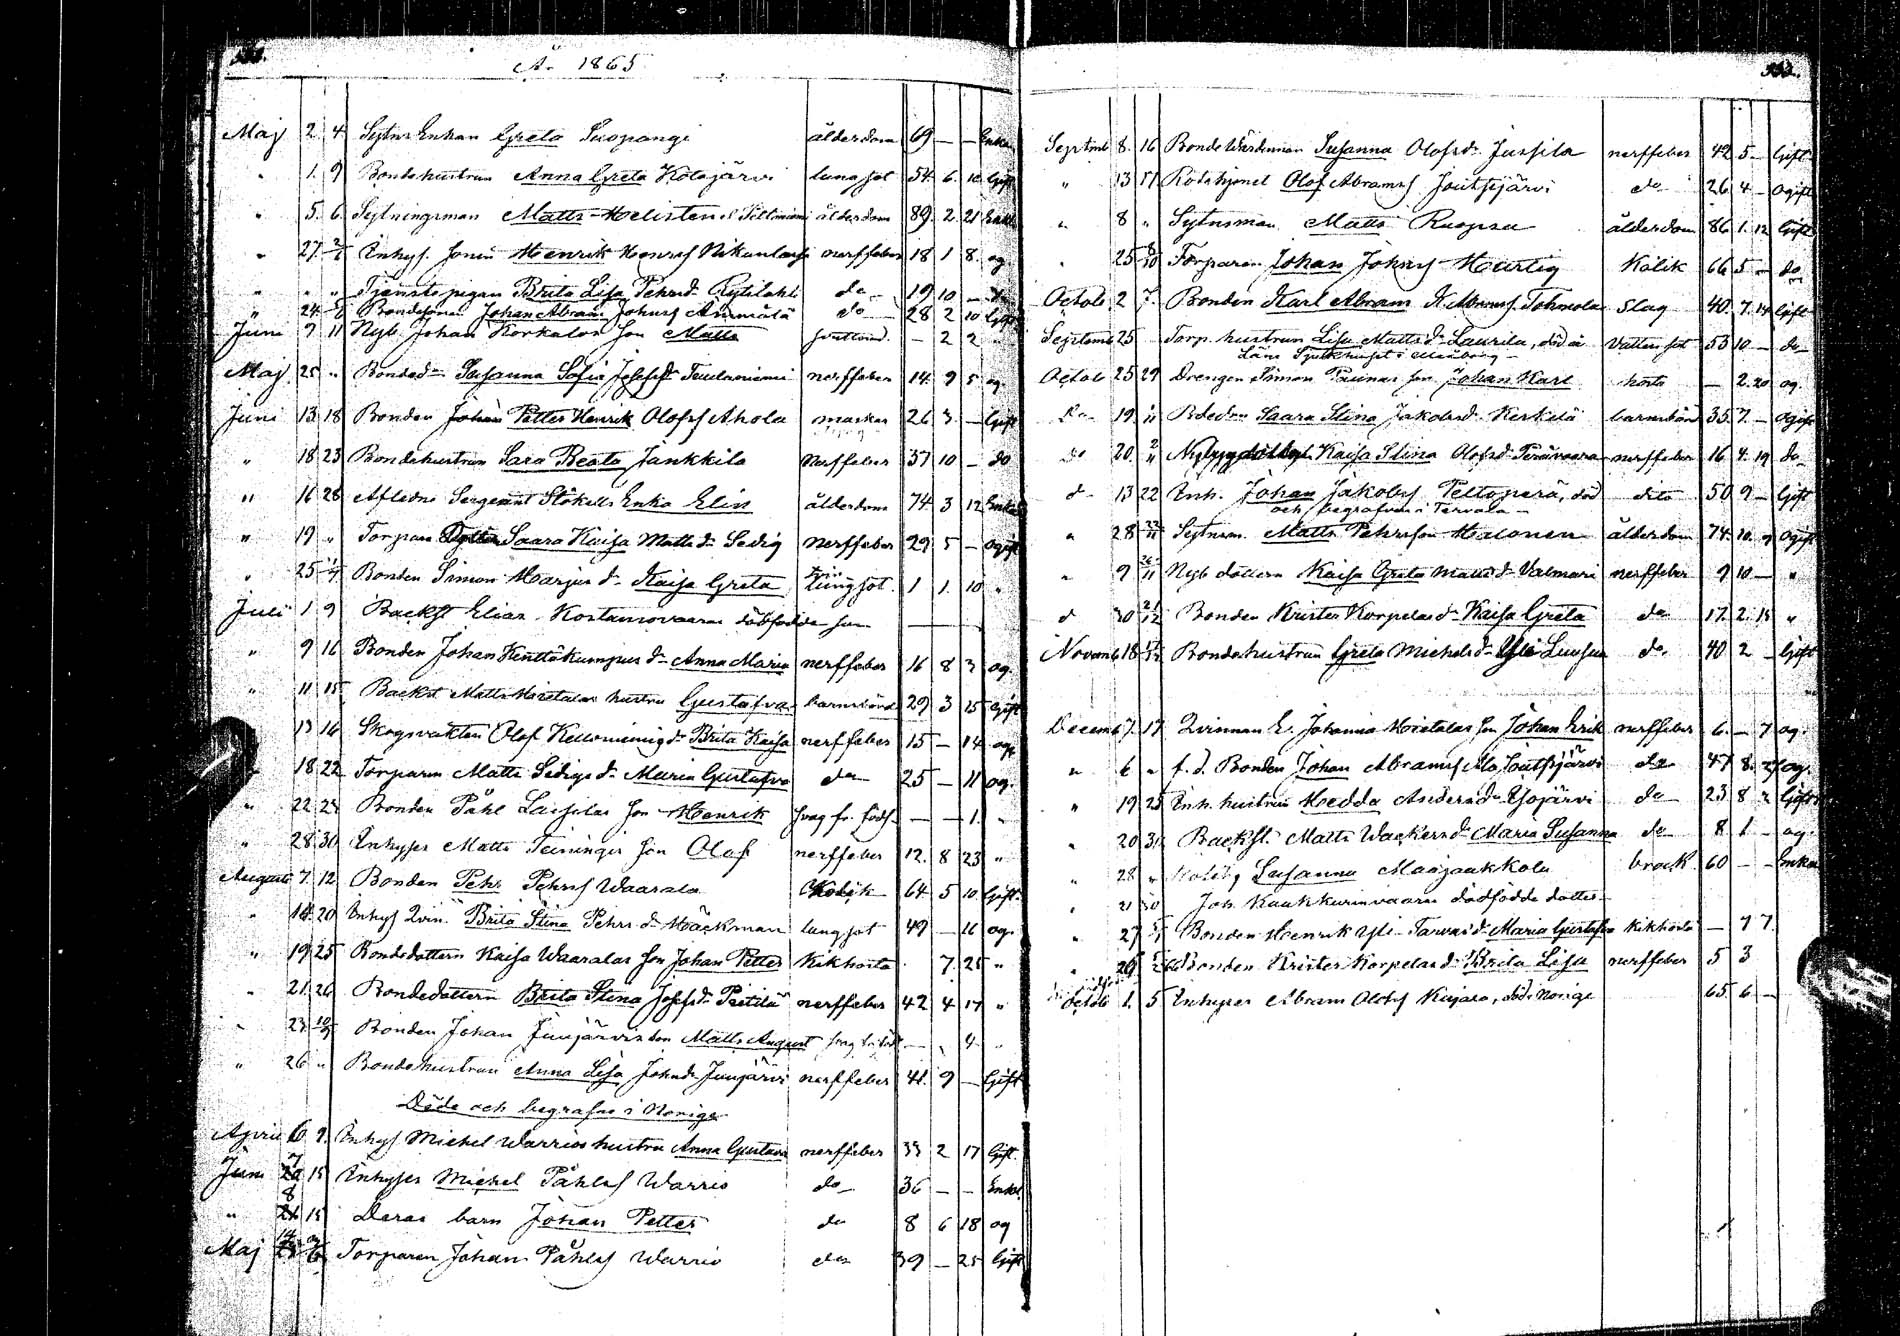 År 1865
Maj 2 4 Sytn Enkan Greta Suopangi ålderdom 69 — — Enka
" 1 9 Bondehustrun Anna Greta Kotajärvi lungsot 54 6 10 Gift
" 5 6 Sytningsman Matts Helisten ålderdom 89 2 21 Enkl
" 27 Inhys. sonen Henrik Henrss nerffeber 18 1 8 og
" " " Tjenstepigan Brita Lisa Pehrsd. Kytilahti do 19 10 — do
" 24 Bondsonen Johan Abram Johnss Ammälä do 28 2 10 Gift
Juni 9 11 Nyb. Johan Korkalos son Matts — 2 2 "
Maj 25 " Bonded. Susanna Sofia Josefsd Teulaniemi nerffeber 14 9 5 og
Juni 13 18 Bonden Johan Petter Henrik Olofss Ahola maskar 26 3 — Gift
" 18 23 Bondehustrun Sara Beata Jankkila nerffeber 37 10 — do
" 16 28 Afledne Sergeant Ståkells Enka Elin ålderdom 74 3 12 Enka
" 19 " Torpare Saara Kaisa Mattsd. Sedig nerffeber 29 5 — ogift
" 25 Bonden Simon Marjus d. Kaisa Greta lungsot 1 1 10 "
Juli 1 9 Backst Elias Kostamovaaras dödfödde son
" 9 16 Bonden Johan Kenttäkumpus d. Anna Maria nerffeber 16 8 3 og.
" 11 15 Backst Matts Hietalas hustru Gustafva barnsbörd 29 3 15 Gift
13 16 Skogsvaktan Olof Kellominings d. Brita Kaisa nerffeber 15 — 14 og
" 18 22 Torparen Matts Sedigs d. Maria Gustafva do 25 — 11 og.
" 22 23 Bonden Påhl Lassilas son Henrik svag fr. föds. — — 1 "
" 28 30 Inhyses Matts Teiningis son Olof nerffeber 12 8 23 "
Augusti 7 12 Bonden Pehr Pehrss Waarala Kolik 64 5 10 Gift
" 14 20 Inhys Qvin. Brita Stina Pehrsd. Mäckman lungsot 49 — 16 og.
" 19 25 Bondedottern Kaisa Waaralas son Johan Petter Kikhosta 7 25 "
" 21 26 Bondedottern Brita Stina Josefsd. Pistilä nerffeber 42 4 17 "
" 23 10/9 Bonden Johan Juujärvis son Matts August — " 4 "
" 26 " Bondehustrun Anna Lisa Johnsd. Juujärvi nerffeber 41 9 — Gift
Döde och begrafne i Norige
April 6 9 Inhys Michel Warrios hustru Anna Gustava nerffeber 33 2 17 Gift
Juni 7 15 Inhyses Michel Påhlss Warrio do 36 — — Enkl.
" 8 15 Deras barn Johan Petter do 8 6 18 og
Maj Torparen Johan Påhlss Warrio do 39 — 25 Gift
Septemb 8 16 Bonde Wärdinnan Susanna Olofsd. Jussila nerffeber 42 5 — Gift
" 13 17 Rotehjonet Olof Abramss Joutsijärvi do 26 4 — ogift
" 8 " Sytnsman Matts Ruopsa ålderdom 86 1 12 Gift
" 25 8/10 Torparen Johan Johnss Hurtig Kolik 66 5 — do
Octob 2 7 Bonden Karl Abram K. Abramss Tohmola Slag 40 7 14 Gift
Septemb 25 Torp. hustrun Lisa Mattsd. Laurila, död å Vattensot 53 10 — do
Läns Sjukhuset i Uleåborg
Octob 25 29 Drengen Simon Paunas son Johan Karl hosta — 2 20 og.
Do 19 Bdedtr Saara Stina Jakobsd. Kerkelä barnsbörd 35 7 — ogift
do 20 Kaisa Stina Olofsd. Perävaara nerffeber 16 4 19 do
d. 13 22 Inh. Johan Jakobss Peltoperä, död dito 50 9 — Gift
och begrafven i Tervola
" 28 Sytnm. Matts Pehrsson Halonen ålderdom 74 10 9 ogift
" 9 Nyb dottern Kaisa Greta Mattsd. Valmari nerffeber 9 10 — "
d 30 Bonden Krister Korpelas d. Kaisa Greta do 17 2 15 "
Novemb 18 Bondehustrun Greta Michelsd. Yli Luusua do 40 2 — Gift
Decemb 7 17 Qvinnan E. Johanna Hietalas son Johan Erik nerffeber 6 — 7 og.
" 6 " f. d. Bonden Johan Abramss Ala Joutsijärvi do 47 8 27 og.
" 19 25 Inh. hustrun Hedda Andersd. Isojärvi do 23 8 2 Gift
" 20 31 Backst. Matts Wackers d. Maria Susanna do 8 1 — og.
" 28 " Susanna Maajaakkola bråck 60 — — Enka
" 21 30 Joh. Kaukkurinvaaras dödfödde dotter
" 27 Bonden Henrik Yli-Tarvas d. Maria Gustafva Kikhosta — 7 7
" 26 Bonden Krister Korpelas d. Brita Lisa nerffeber 5 3
Octob 1 5 Inhyses Abram Olofss Kujala, död i Norige 65 6 —